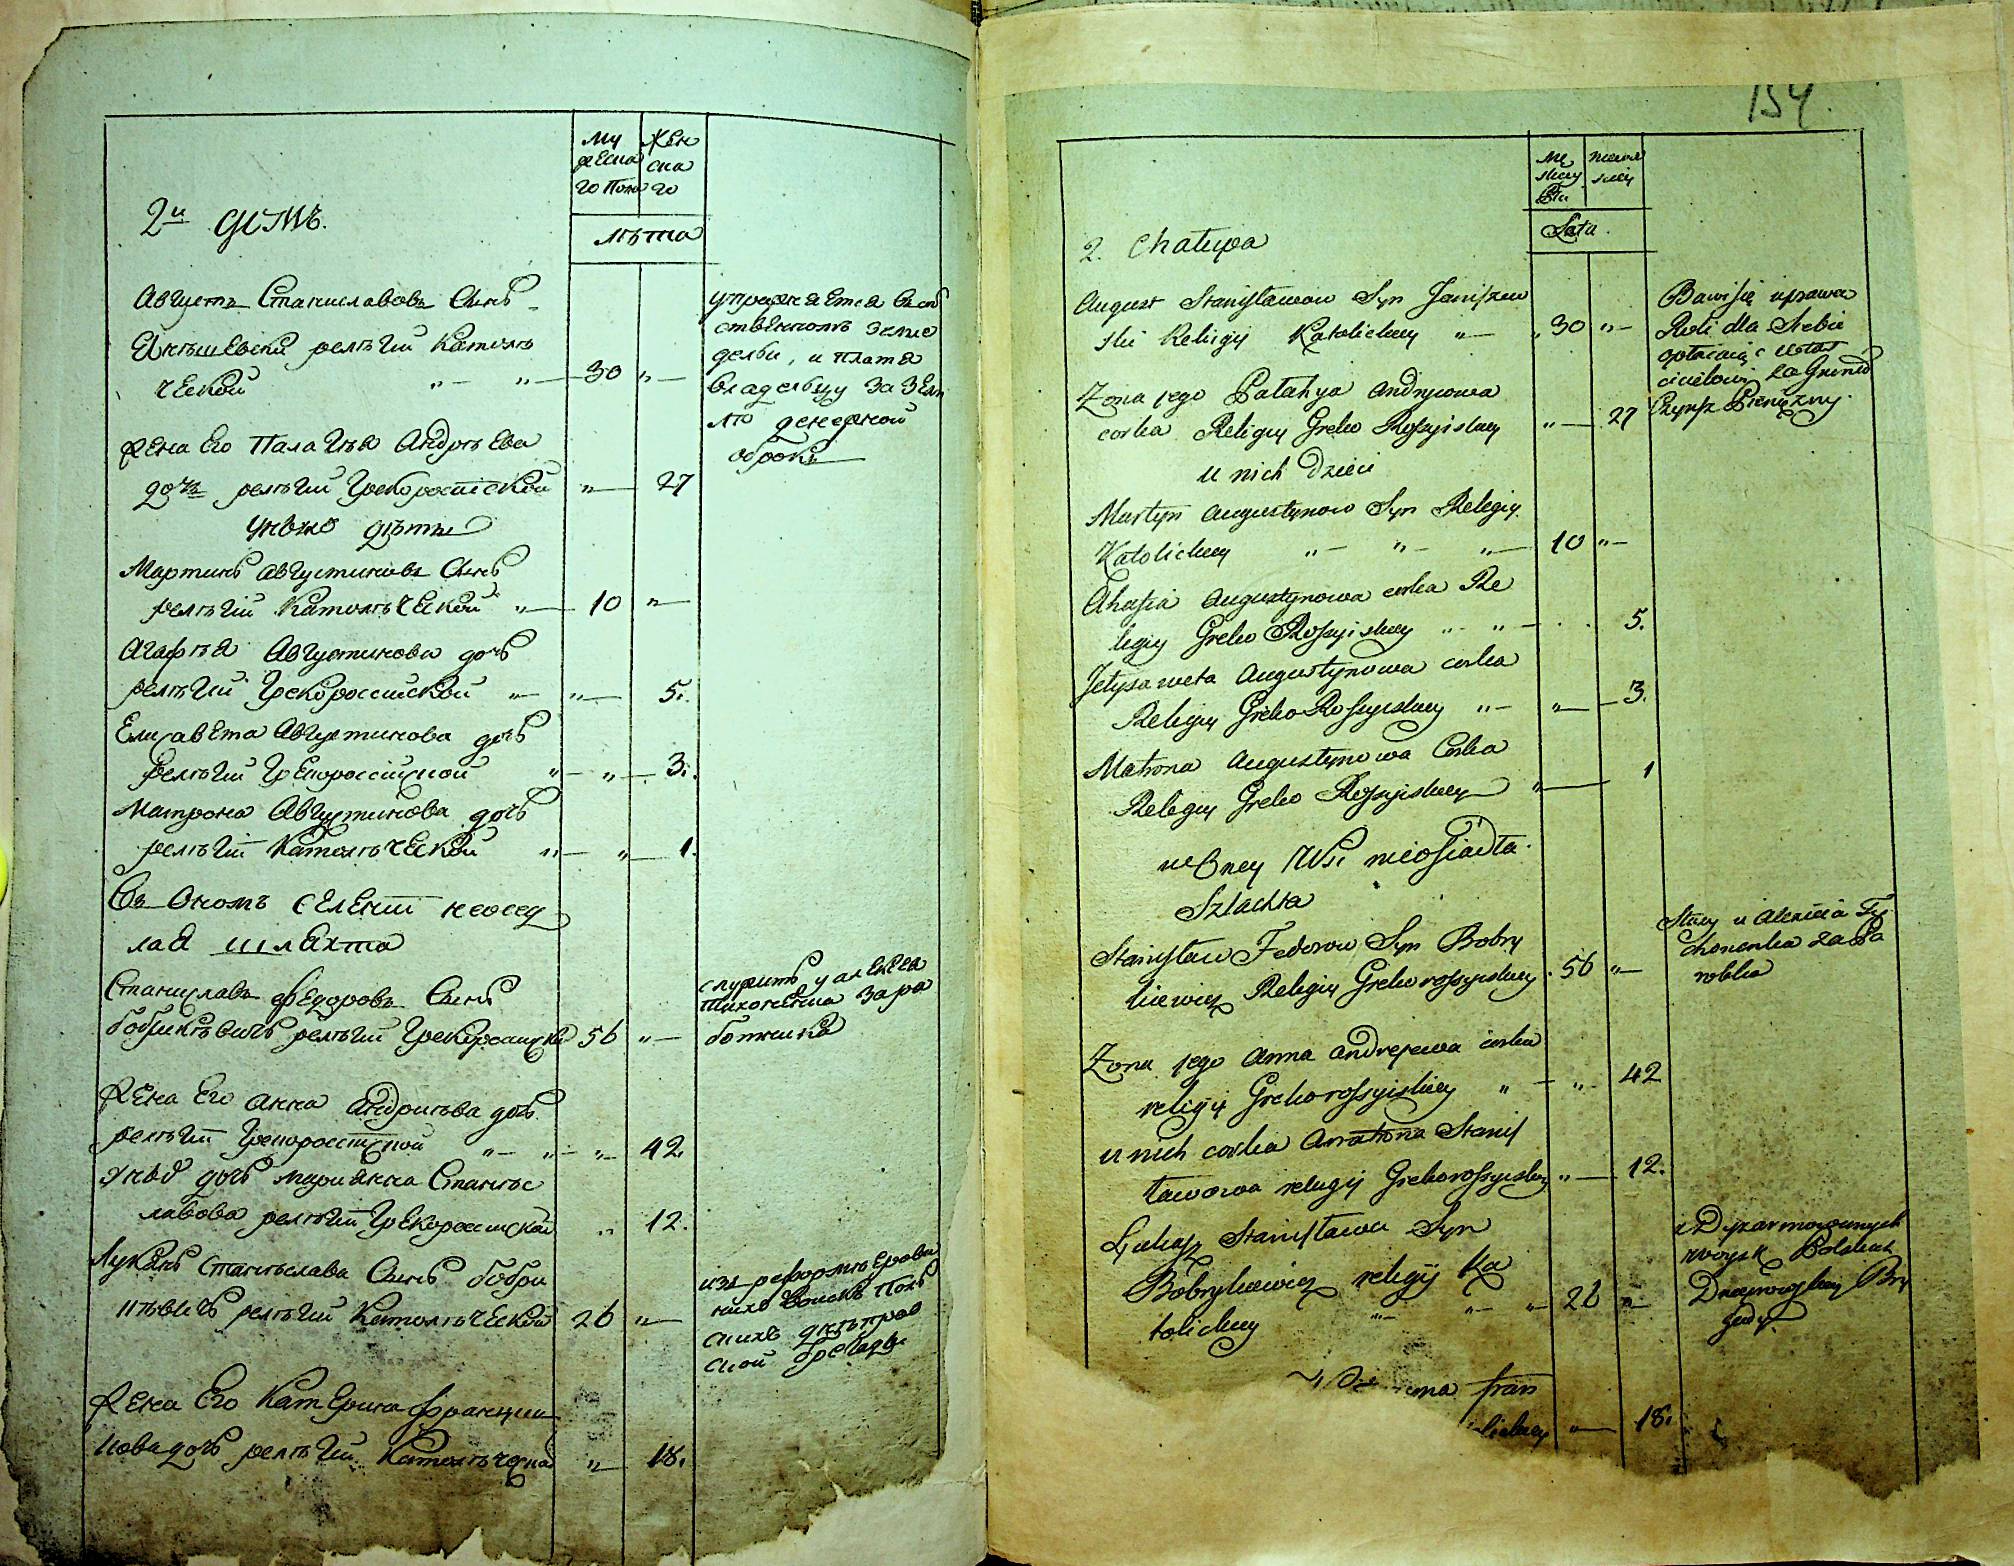 Му
жеска
го пола
Жен
ска
го
лѣта
2й домъ.
Августъ Станиславовъ Сынъ
Енѣшевскй релѣгiи Католѣ
ческой " — " — 30 " —
упражняется въ соб
ственномъ земле
делъи, и платя
владельцу за зем
лю денежной
оброкъ
Жена Его Палагѣя Андрѣева
дочь релѣгiи Грекороссiской " — 27
Унихъ дѣти
Мартинъ Августиновъ Сынъ
релѣгiи Католѣческой " — 10 " —
Агафѣя Августинова дочь
релѣгiи Грекороссийской " — " — 5.
Елисавета Августинова дочь
релѣгiи Грекороссiйской " — " — 3.
Матрона Августинова дочь
релѣгiи Католѣческой " — " — 1.
Въ Ономъ селенiи неосед
лая шляхта
Станиславъ Федоровъ Сынъ
Бобрикѣвичъ релѣгiи Грекоросийско 56 " —
служитъ у алексея
тихоненка за ра
ботника
Жена Его анна андриѣва дочь
релѣгiи Грекоросстской " — " — " — 42.
Унихъ дочь марианна Станѣс
лавова релѣгiи Грекоросийской " 12.
Луканъ Станѣслава Сынъ бобри
кѣвичъ релѣгiи Католѣческой 26 " —
изъ реформѣрова
нихъ войскъ Поль
скихъ днѣпров
ской брекады
Жена Его Катерина францѣш
кова дочь релѣгiи Католѣческой " — 18.
154.
Mę
skiey
Płci
niewie
sciey
Lata.
2. Chałupa
August Stanisławow Syn Janiszew
ski Religij Katolickiey " — " 30 " —
Bawi się uprawą
Roli dla Siebie
opłacaiąc właś
cicielowi za Grunt
Czynsz Pieniężny.
Zona jego Pałahya Andryiowa
corka Religij Greko Rossyiskiey " — 27
u nich Dzieci
Martyn Augustynow Syn Religij
Katolickiey " — " — " — 10 " —
Ahafia Augustynowa corka Re
ligij Greko Rossyiskiey " — " — 5.
Jełysaweta Augustynowa corka
Religij Greko Rossyiskiey " — " — 3.
Matrona Augustynowa Corka
Religij Greko Rossyiskiey " — 1
w Oney Wsi nieosiadła
Szlachta
Stanisław Fedorow Syn Bobry
kiewicz Religij Grekorossyiskiey . 56 " —
Służy u Alexieia Ty
chonenka za Pa
robka
Zona jego Anna Andrejewa corka
religij Grekorossyiskiey " — " — 42
u nich corka Maryanna Stanis
ławowa religij Grekorossyiskiey " — 12.
Łukasz Stanisława Syn
Bobrykiewicz religij Ka
tolickiey " — " — 26 " —
z Dyzarmowanych
woysk Polskich
Dnieprowskiey Bry
gady.
fran
lickiey " — 18.